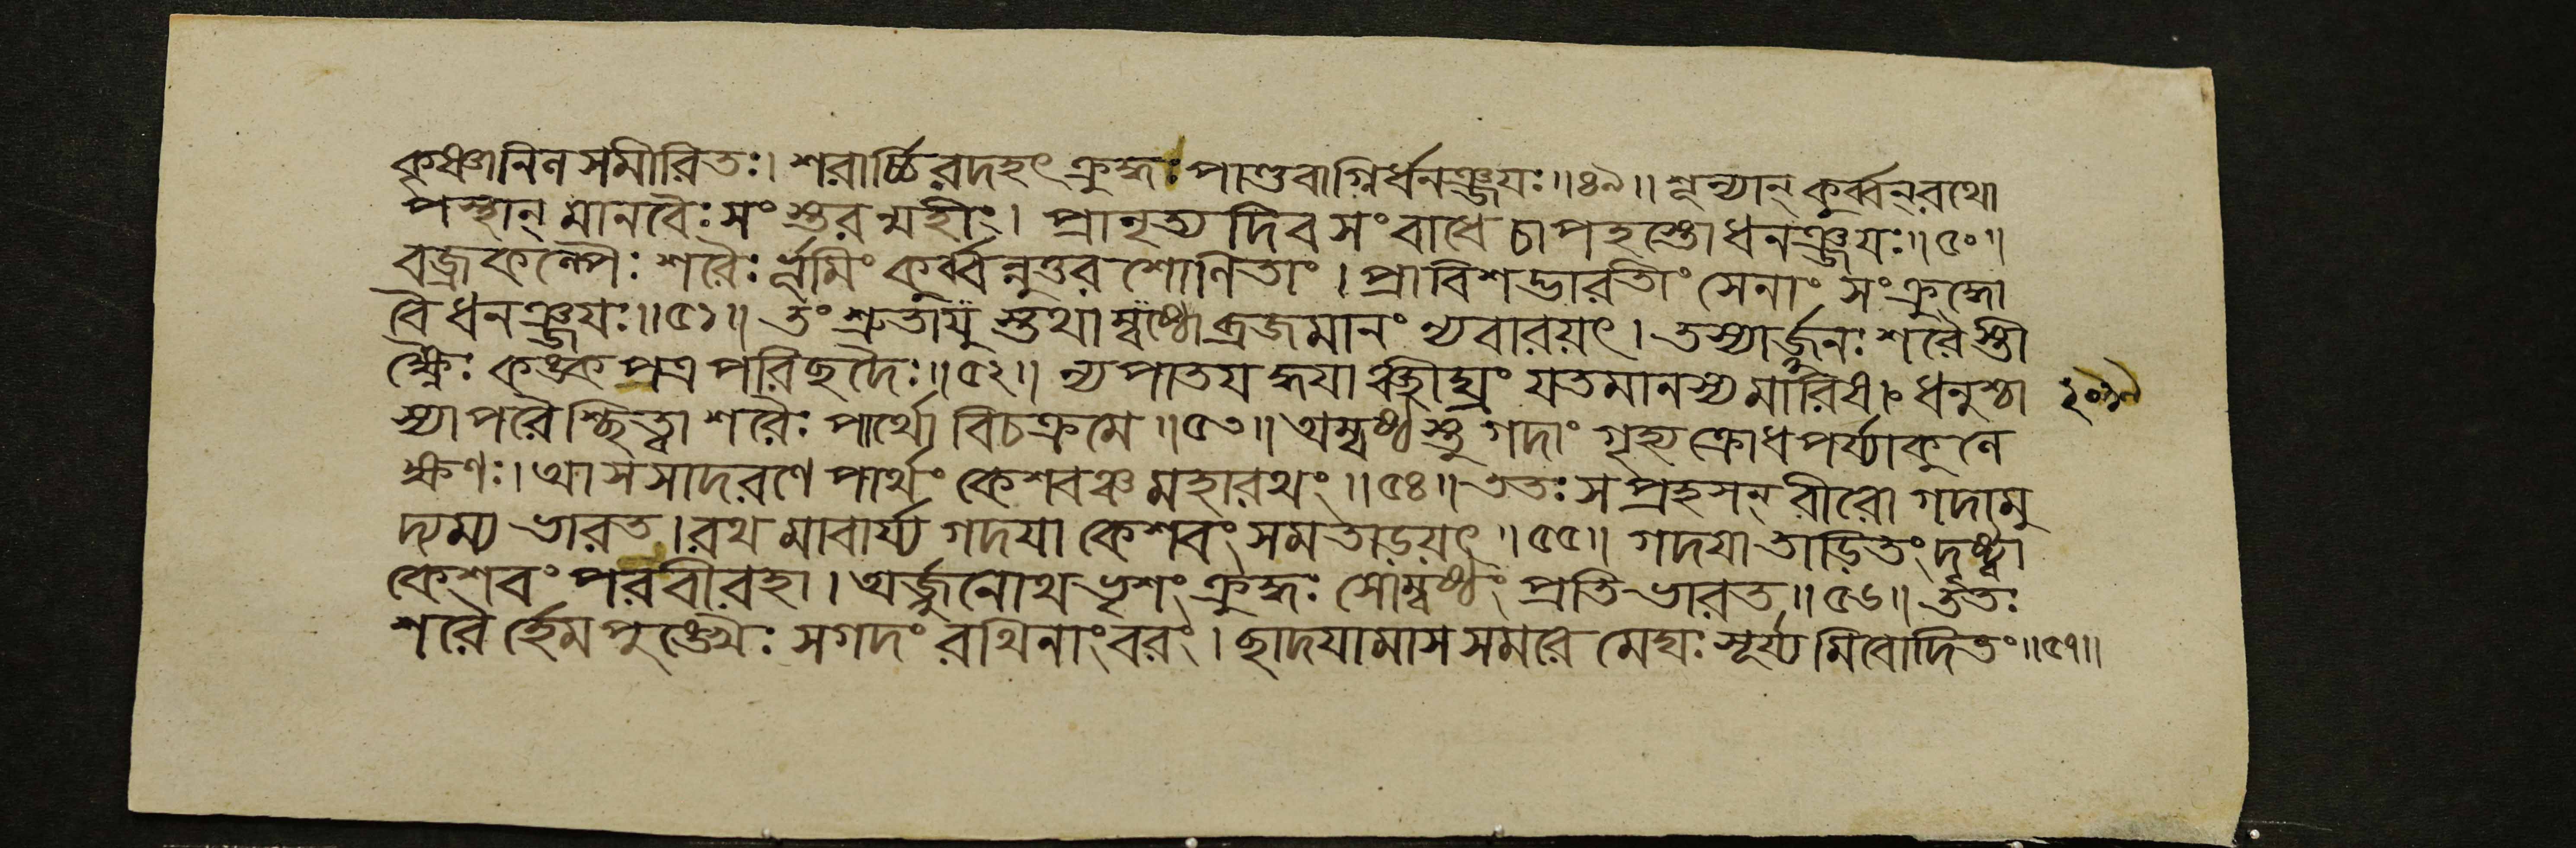 কৃষ্ণানিলসমীরিতঃ। শরার্চ্চিরদহৎ ক্রুদ্ধঃ পাণ্ডবাগ্নির্ধনঞ্জয়ঃ॥৪৯॥ শূন্যান্ কুর্ব্বন্ রথো
পস্থান্ মানবৈঃ সংস্তরন্মহীং। প্রানৃত্যদিব সংবাধে চাপহস্তো ধনঞ্জয়ঃ॥৫০॥
বজ্রকল্পৈঃ শরৈঃর্ভূমিং কুর্ব্বন্নুত্তরশোণিতাং। প্রাবিশদ্ভারতীং সেনাং সংক্রুদ্ধো
বৈ ধনঞ্জয়ঃ॥৫১॥ তং শ্রুতায়ুস্তথাম্বষ্ঠো ব্রজমানং ন্যবারয়ৎ। তস্যার্জ্জুনঃ শরৈস্তী
ক্ষ্ণৈঃ কঙ্কপত্রপরিছদৈঃ॥৫২॥ ন্যপাতয়দ্ধয়াঞ্ছীঘ্রং যতমানস্য মারিষ। ধনুশ্চা
স্যাপরৈশ্ছিত্ত্বা শরৈঃ পার্থো বিচক্রমে॥৫৩॥ অম্বষ্ঠস্তু গদাং গৃহ্য ক্রোধপর্য্যাকুলে
ক্ষণঃ। আসসাদ রণে পার্থং কেশবঞ্চ মহারথং॥৫৪॥ ততঃ স প্রহসন্ বীরো গদামু
দ্যম্য ভারত। রথমাবার্য্য গদয়া কেশবং সমতাড়য়ৎ॥৫৫॥ গদয়া তাড়িতং দৃষ্ট্বা
কেশবং পরবীরহা। অর্জ্জুনোথ ভৃশং ক্রুদ্ধঃ সোম্বষ্ঠং প্রতি ভারত॥৫৬॥ ততঃ
শরৈর্হেমপুঙ্খৈঃ সগদং রথিনাং বরং। ছাদয়ামাস সমরে মেঘঃ সূর্য্যমিবোদিতং॥৫৭॥